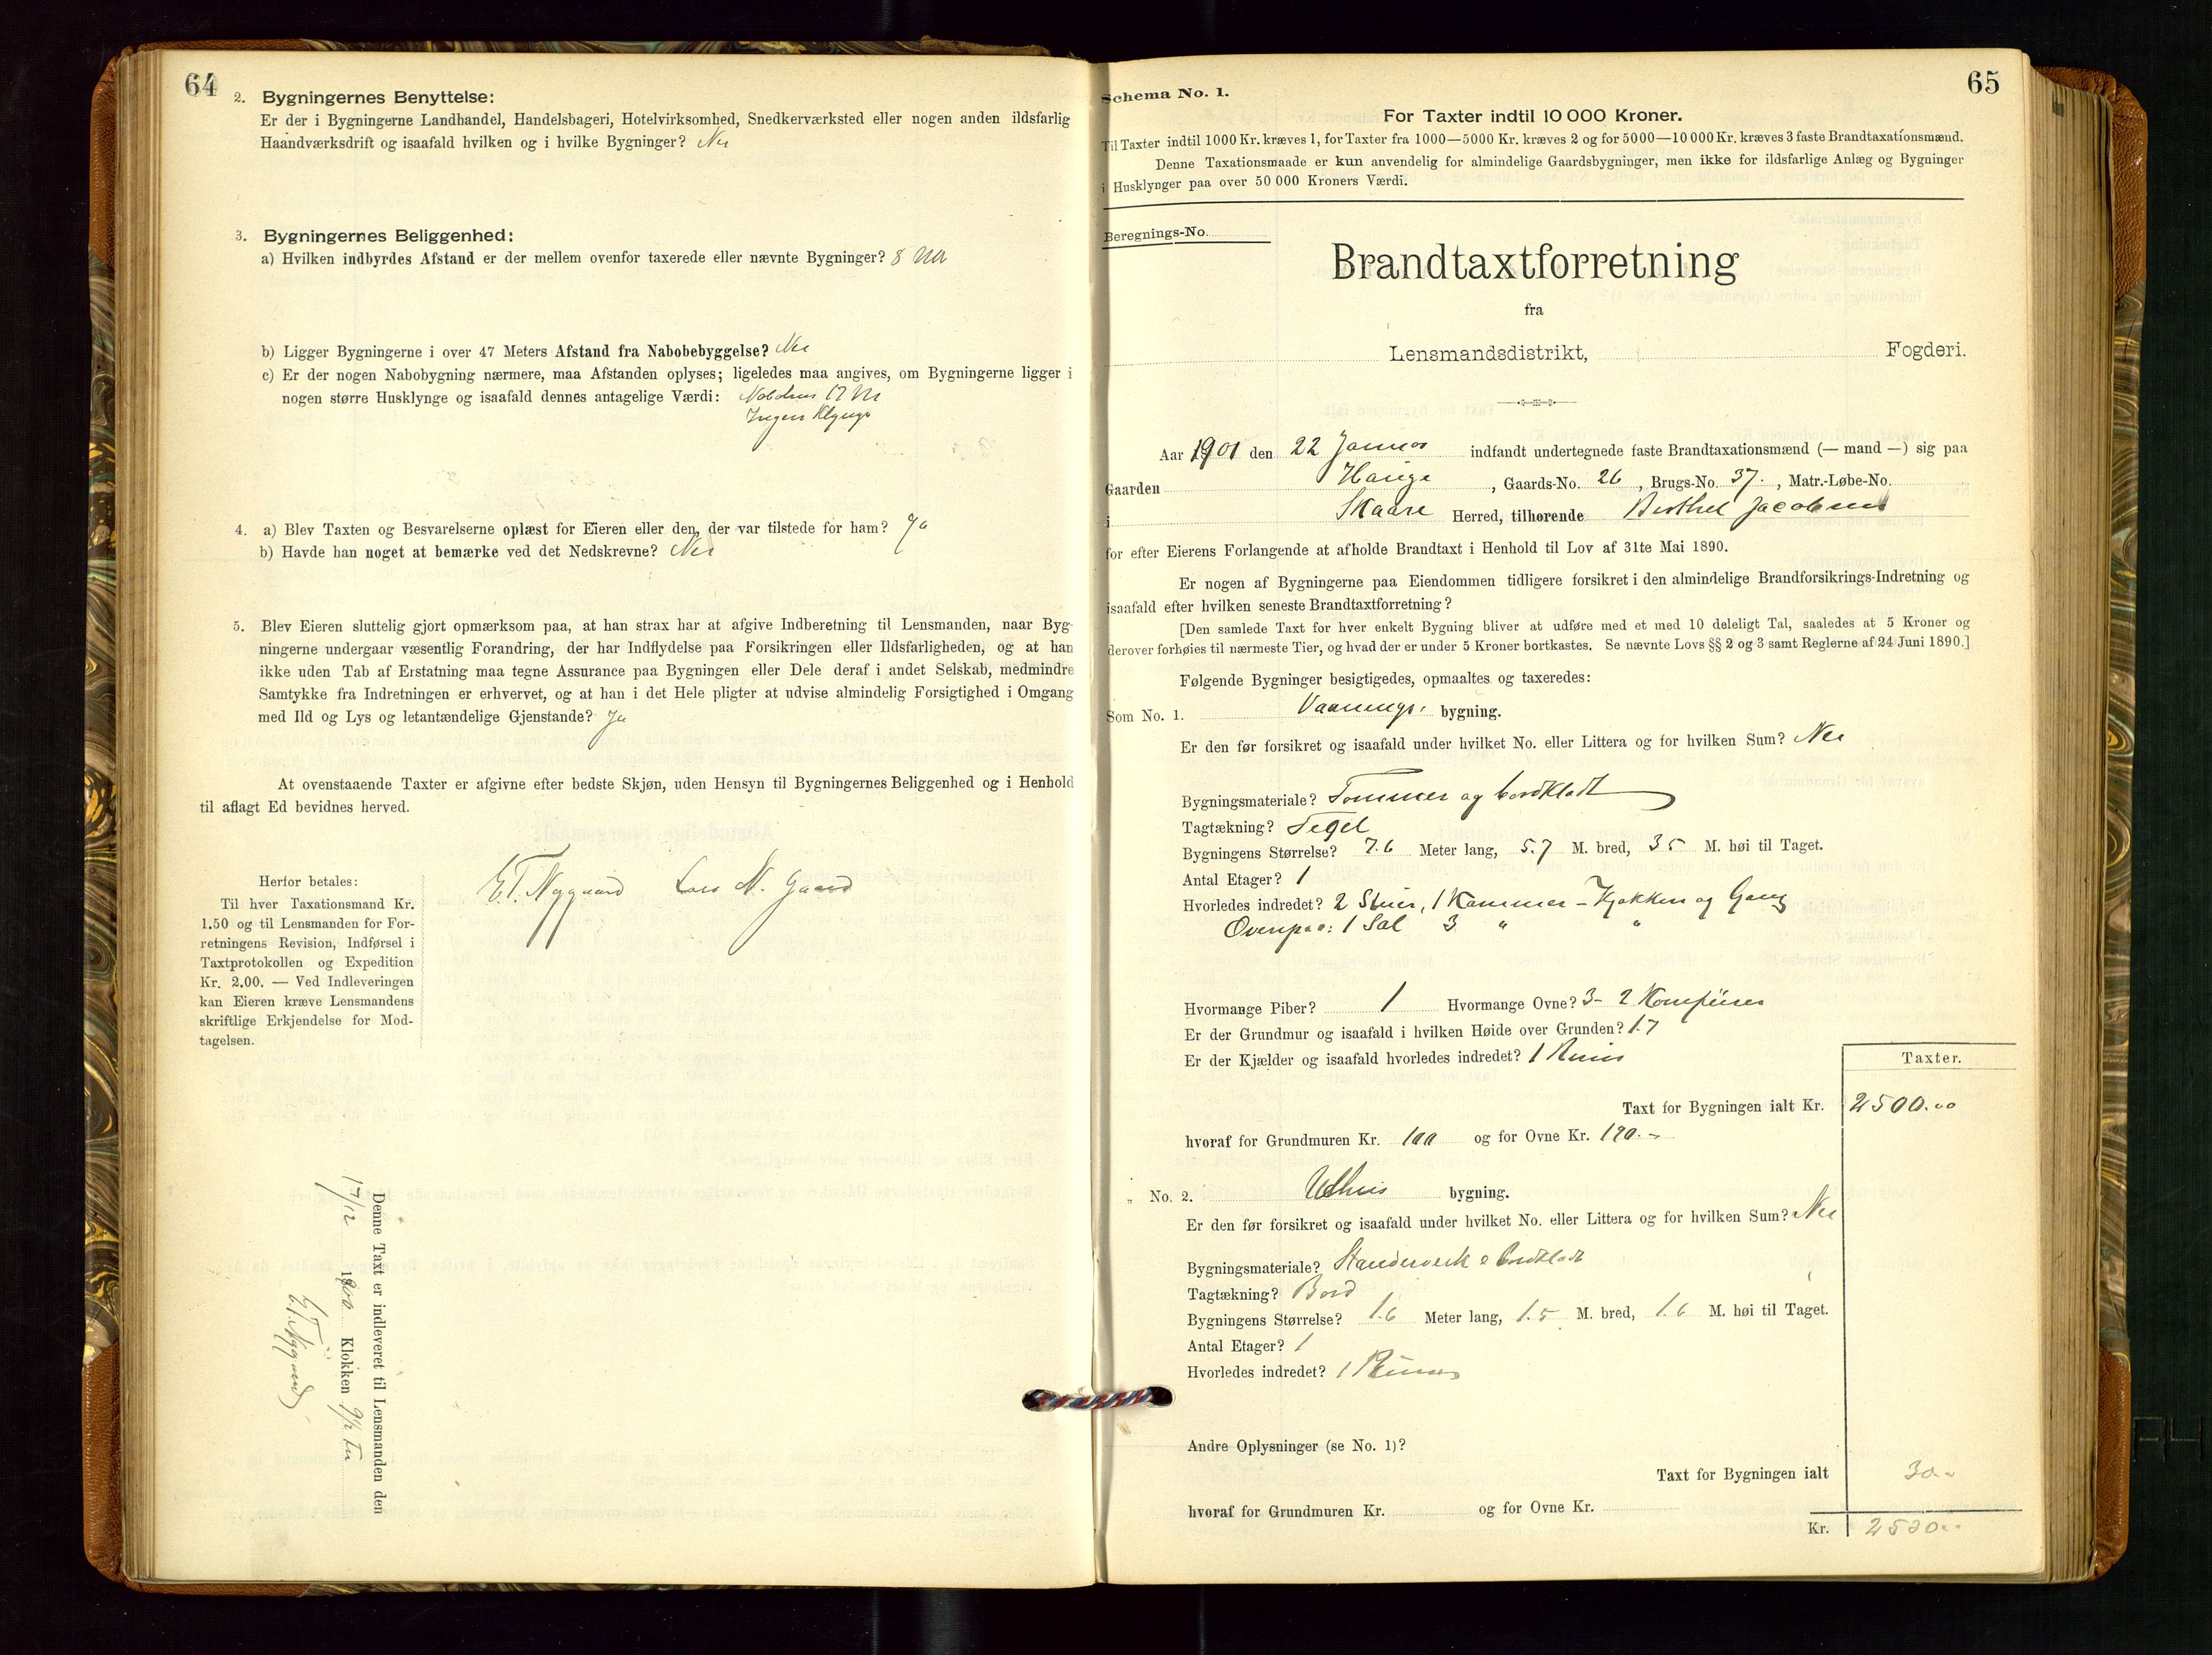 64
2. Bygningernes Benyttelse:
Er der i Bygningerne Landhandel, Handelsbageri, Hotelvirksomhed, Snedkerværksted eller nogen anden ildsfarlig
Haandværksdrift og isaafald hvilken og i hvilke Bygninger? Nei
3. Bygningernes Beliggenhed:
a) Hvilken indbyrdes Afstand er der mellem ovenfor taxerede eller nævnte Bygninger? 8 M
b) Ligger Bygningerne i over 47 Meters Afstand fra Nabobebyggelse? Nei
c) Er der nogen Nabobygning nærmere, maa Afstanden oplyses; ligeledes maa angives, om Bygningerne ligger i
nogen større Husklynge og isaafald dennes antagelige Værdi: 17 M
Ingen Klynge
4. a) Blev Taxten og Besvarelserne oplæst for Eieren eller den, der var tilstede for ham? Ja
b) Havde han noget at bemærke ved det Nedskrevne? Nei
5. Blev Eieren sluttelig gjort opmærksom paa, at han strax har at afgive Indberetning til Lensmanden, naar Byg-
ningerne undergaar væsentlig Forandring, der har Indflydelse paa Forsikringen eller Ildsfarligheden, og at han
ikke uden Tab af Erstatning maa tegne Assurance paa Bygningen eller Dele deraf i andet Selskab, medmindre
Samtykke fra Indretningen er erhvervet, og at han i det Hele pligter at udvise almindelig Forsigtighed i Omgang
med Ild og Lys og letantændelige Gjenstande? Ja
At ovenstaaende Taxter er afgivne efter bedste Skjøn, uden Hensyn til Bygningernes Beliggenhed og i Henhold
til aflagt Ed bevidnes herved.
E.T. Nygaard Lars N. Gaard
Herfor betales:
Til hver Taxationsmand Kr.
1.50 og til Lensmanden for For-
retningens Revision, Indførsel i
Taxtprotokollen og Expedition
Kr. 2.00. — Ved Indleveringen
kan Eieren kræve Lensmandens
skriftlige Erkjendelse for Mod-
tagelsen.
Denne Taxt er indleveret til Lensmanden den
17/12 1900 Klokken 9½
E.T. Nygaard
65
Schema No. 1.
For Taxter indtil 10 000 Kroner.
Til Taxter indtil 1000 Kr. kræves 1, for Taxter fra 1000—5000 Kr. kræves 2 og for 5000—10 000 Kr. kræves 3 faste Brandtaxationsmænd.
Denne Taxationsmaade er kun anvendelig for almindelige Gaardsbygninger, men ikke for ildsfarlige Anlæg og Bygninger
i Husklynger paa over 50 000 Kroners Værdi.
Beregnings-No.
Brandtaxtforretning
fra
Lensmandsdistrikt, Fogderi.
Aar 1901 den 22 Januar indfandt undertegnede faste Brandtaxationsmænd (— mand —) sig paa
Gaarden Hauge, Gaards-No. 26, Brugs-No. 37., Matr.-Løbe-No.
i Skaare Herred, tilhørende Berthel Jacobsen
for efter Eierens Forlangende at afholde Brandtaxt i Henhold til Lov af 31te Mai 1890.
Er nogen af Bygningerne paa Eiendommen tidligere forsikret i den almindelige Brandforsikrings-Indretning og
isaafald efter hvilken seneste Brandtaxtforretning?
[Den samlede Taxt for hver enkelt Bygning bliver at udføre med et med 10 deleligt Tal, saaledes at 5 Kroner og
derover forhøies til nærmeste Tier, og hvad der er under 5 Kroner bortkastes. Se nævnte Lovs §§ 2 og 3 samt Reglerne af 24 Juni 1890.]
Følgende Bygninger besigtigedes, opmaaltes og taxeredes:
Som No. 1. Vaanings bygning.
Er den før forsikret og isaafald under hvilket No. eller Littera og for hvilken Sum? Nei
Bygningsmateriale? Tømmer og bordklædt
Tagtækning? Tegel
Bygningens Størrelse? 7.6 Meter lang, 5.7 M. bred, 3 5 M. høi til Taget.
Antal Etager? 1
Hvorledes indredet? 2 Stuer, 1 Kammer – Kjøkken og Gang
Ovenpaa: 1 Sal 3 " "
Hvormange Piber? 1 Hvormange Ovne? 3 – 2 Komfuirer
Er der Grundmur og isaafald i hvilken Høide over Grunden? 1.7
Er der Kjælder og isaafald hvorledes indredet? 1 Rum
Taxter.
Taxt for Bygningen ialt Kr. 2500.00
hvoraf for Grundmuren Kr. 100 og for Ovne Kr. 190.–
„ No. 2. Udhus bygning.
Er den før forsikret og isaafald under hvilket No. eller Littera og for hvilken Sum? Nei
Bygningsmateriale? Standerverk & bordklædt
Tagtækning? Bord
Bygningens Størrelse? 1.6 Meter lang, 1.5 M. bred, 1.6 M. høi til Taget.
Antal Etager? 1
Hvorledes indredet? 1 Rum
Andre Oplysninger (se No. 1)?
Taxt for Bygningen ialt 30.–
hvoraf for Grundmuren Kr. og for Ovne Kr.
Kr. 2530.–